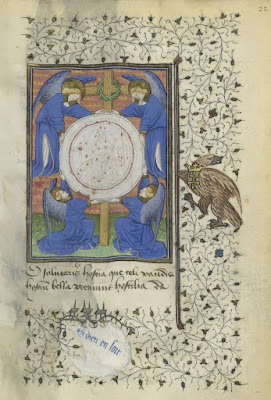 O salutaris hostia que celi pandis
hostiu bella premunt hostilia da
en